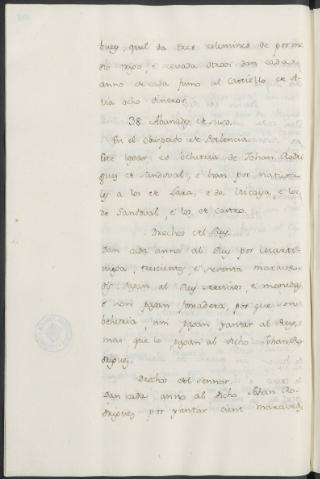 buey, qual da tres celemines de por me
dio trigo, e cevada otrosi dan cada
anno de cada fumo al Castiello de
ocho dineros.
38. Abanades de suso.
En el obispado de Palencia.
Este logar es behetria de Johan Rodri
guez de Sandoval, e han por natura
les a los de Lara, e de Vizcaya, e los
de Sandoval, e los de Castro.
Derechos del Rey.
Dan cada anno al Rey por
trescientos, e sesenta maravedis
pagan al Rey servicios, e monedas
e non pagan fonsadera, por que son
behetria, nin pagan yantar al Rey,
mas que lo pagan al dicho Johan Ro
driguez.
Derechos del Sennor.
Dan cada anno al dicho Johan Ro-
driguez por yantar cient maravedis